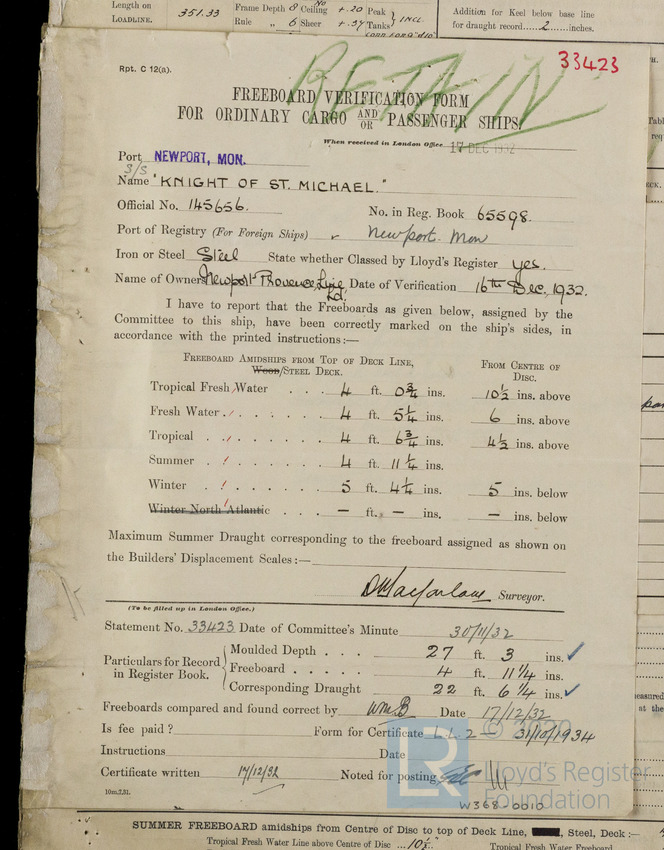 Length on
LOADLINE. 351.33
Frame Depth 8 Ceiling No + .20 Peak
Rule „ 6 Sheer + .37 Tanks INCL.
Addition for Keel below base line
for draught record 2 inches.
33423
RETAIN
Rpt. C 12(a).
FREEBOARD VERIFICATION FORM
FOR ORDINARY CARGO AND OR PASSENGER SHIPS.
When received in London Office 17 DEC 1932
Port NEWPORT, MON.
S/S
Name "KNIGHT OF ST. MICHAEL."
Official No. 145656. No. in Reg. Book 65598.
Port of Registry (For Foreign Ships) Newport. Mon
Iron or Steel Steel State whether Classed by Lloyd's Register yes.
Name of Owners Newport Provence Line Ltd. Date of Verification 16th Dec. 1932.
I have to report that the Freeboards as given below, assigned by the
Committee to this ship, have been correctly marked on the ship's sides, in
accordance with the printed instructions:—
FREEBOARD AMIDSHIPS FROM TOP OF DECK LINE, FROM CENTRE OF
Wood/STEEL DECK. DISC.
Tropical Fresh Water . . . 4 ft. 0 3/4 ins. 10 1/2 ins. above
Fresh Water . . . . . . . 4 ft. 5 1/4 ins. 6 ins. above
Tropical . . . . . . . 4 ft. 6 3/4 ins. 4 1/2 ins. above
Summer . . . . . . . 4 ft. 11 1/4 ins.
Winter . . . . . . . 5 ft. 4 1/4 ins. 5 ins. below
Winter North Atlantic . . . . — ft. — ins. — ins. below
Maximum Summer Draught corresponding to the freeboard assigned as shown on
the Builders' Displacement Scales:—
D Macfarlane Surveyor.
(To be filled up in London Office.)
Statement No. 33423 Date of Committee's Minute 30/11/32
Particulars for Record in Register Book.
Moulded Depth . . . 27 ft. 3 ins. ✓
Freeboard . . . . . 4 ft. 11 1/4 ins.
Corresponding Draught 22 ft. 6 1/4 ins. ✓
Freeboards compared and found correct by WMB Date 17/12/32
Is fee paid? Form for Certificate L.L.2 — 31/10/1934
Instructions Date
Certificate written 17/12/32 Noted for posting
10m,7,31.
© 2020
LR
Lloyd's Register
Foundation
W368-0010
SUMMER FREEBOARD amidships from Centre of Disc to top of Deck Line, Steel, Deck :-
Tropical Fresh Water Line above Centre of Disc ... 10½ Tropical Fresh Water Freeboard